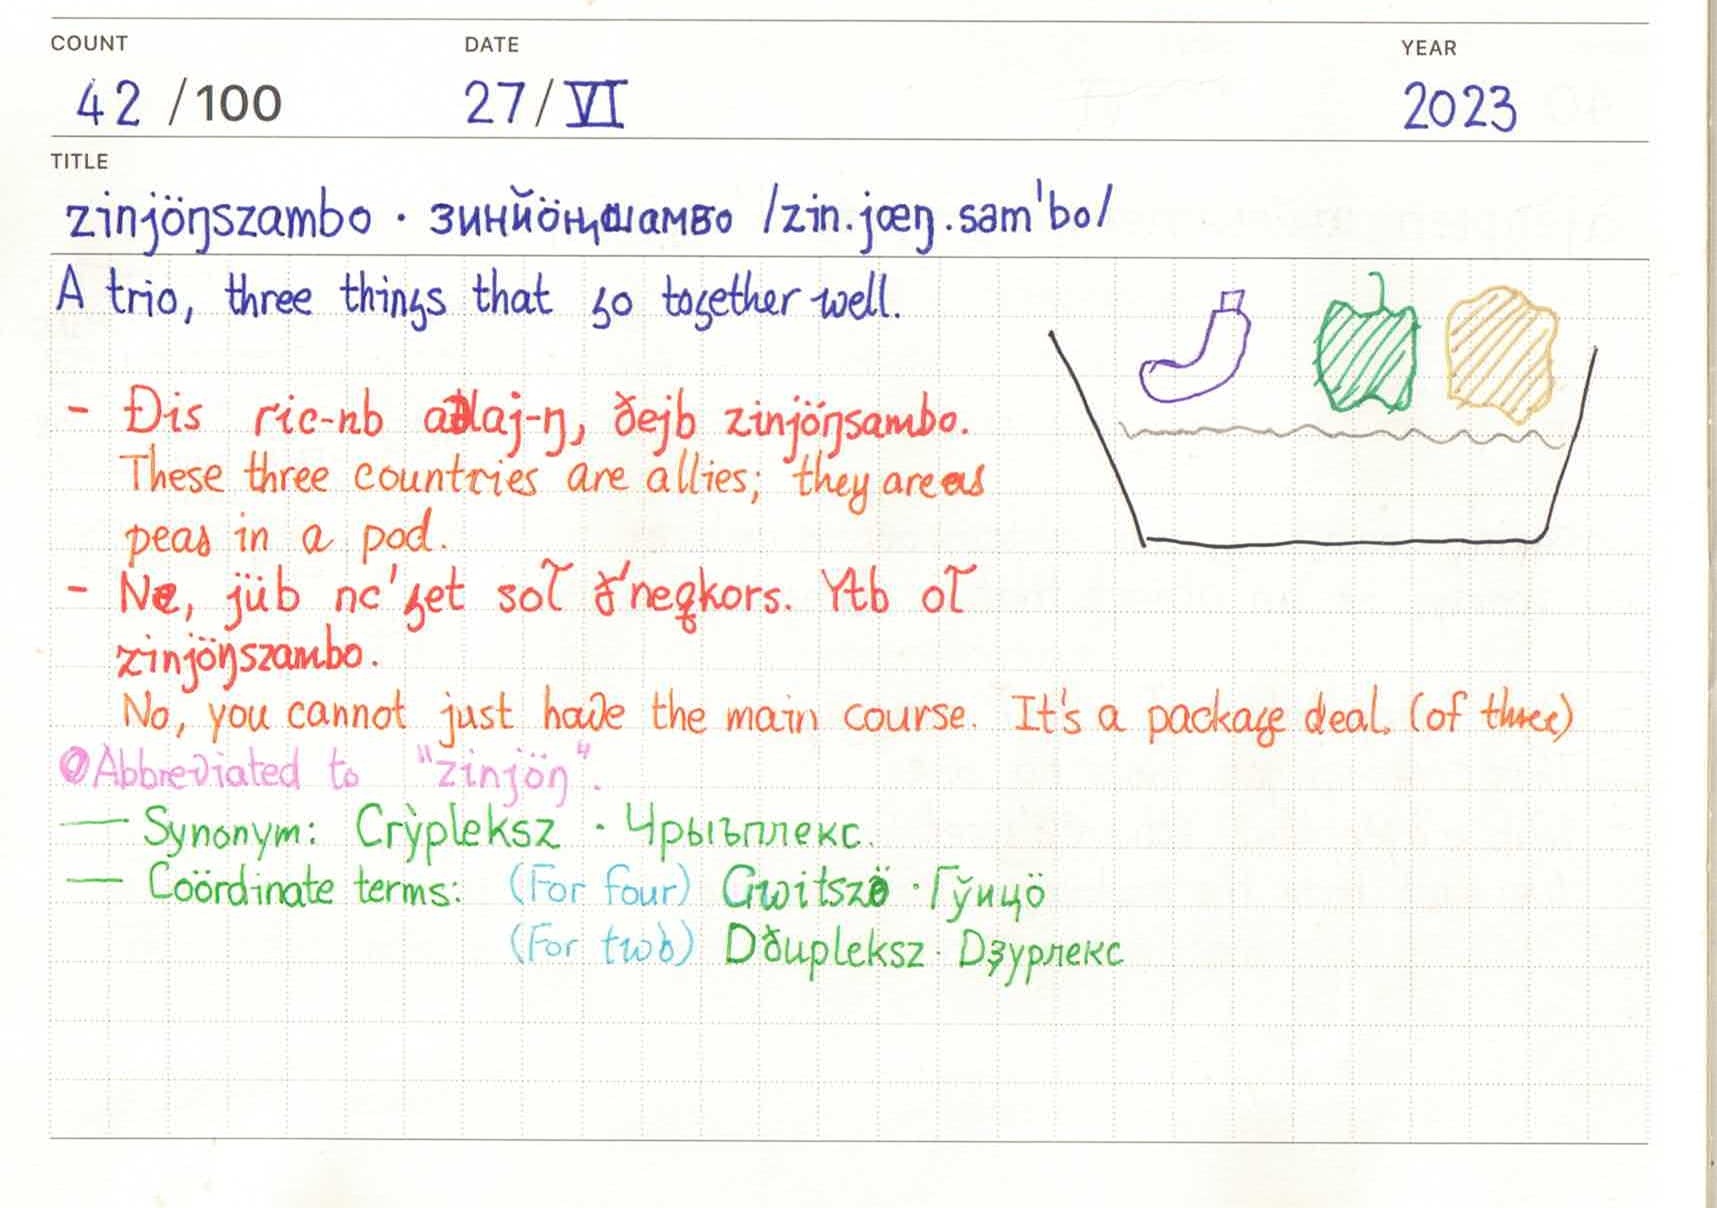 COUNT DATE YEAR
42 /100 27/VI 2023
TITLE
zinjöŋszambo · зинйöӊшамво /zin.jœŋ.sam'bo/
A trio, three things that go together well.
- Ðis ric-nb adlaj-ŋ, ðejb zinjöŋsambo.
These three countries are allies; they are as
peas in a pod.
- Ne, jüb nc'get sol̃ ð'neqkors. Ytb ol̃
zinjöŋszambo.
No, you cannot just have the main course. It's a package deal. (of three)
Abbreviated to "zinjöŋ".
— Synonym: Crỳpleksz · Чрыъплекс.
— Coördinate terms: (For four) Gwitszö · Гўицö
(For two) Dðupleksz · Dҙурлекс